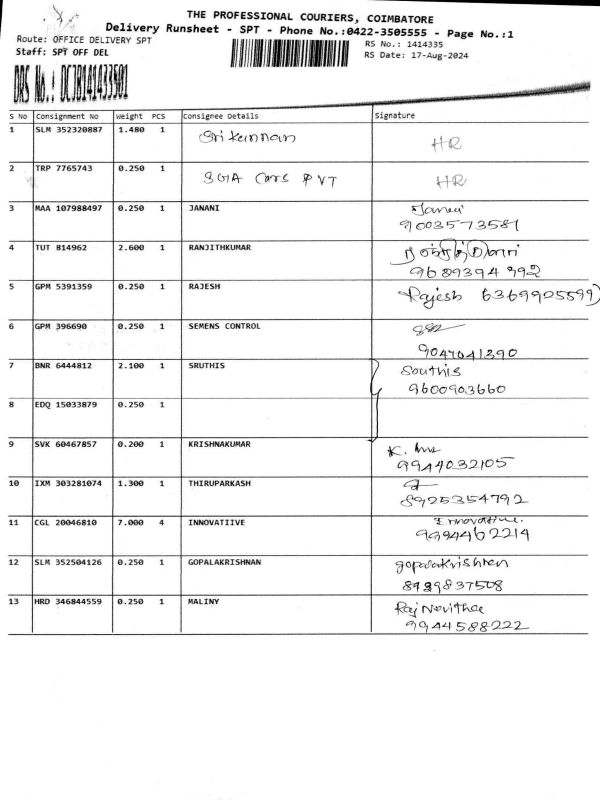 THE PROFESSIONAL COURIERS, COIMBATORE
Delivery Runsheet - SPT - Phone No.:0422-3505555 - Page No.:1
Route: OFFICE DELIVERY SPT
RS No.: 1414335
Staff: SPT OFF DEL
RS Date: 17-Aug-2024
DRS No.: DCJB141433501
S No Consignment No Weight PCS Consignee Details Signature
1 SLM 352320887 1.480 1 Srikannan HR
2 TRP 7765743 0.250 1 SGA Cars PVT HR
3 MAA 107988497 0.250 1 JANANI Janani
9003573581
4 TUT 814962 2.600 1 RANJITHKUMAR
9689394392
5 GPM 5391359 0.250 1 RAJESH Rajesh 6369905599
6 GPM 396690 0.250 1 SEMENS CONTROL
9047041390
7 BNR 6444812 2.100 1 SRUTHIS Southis
9600903660
8 EDQ 15033879 0.250 1
9 SVK 60467857 0.200 1 KRISHNAKUMAR K.
9944032105
10 IXM 303281074 1.300 1 THIRUPARKASH
8925354792
11 CGL 20046810 7.000 4 INNOVATIIVE Innovative.
9994462214
12 SLM 352504126 0.250 1 GOPALAKRISHNAN gopalakrishnan
8939837508
13 HRD 346844559 0.250 1 MALINY Raj Navitha
9944588222